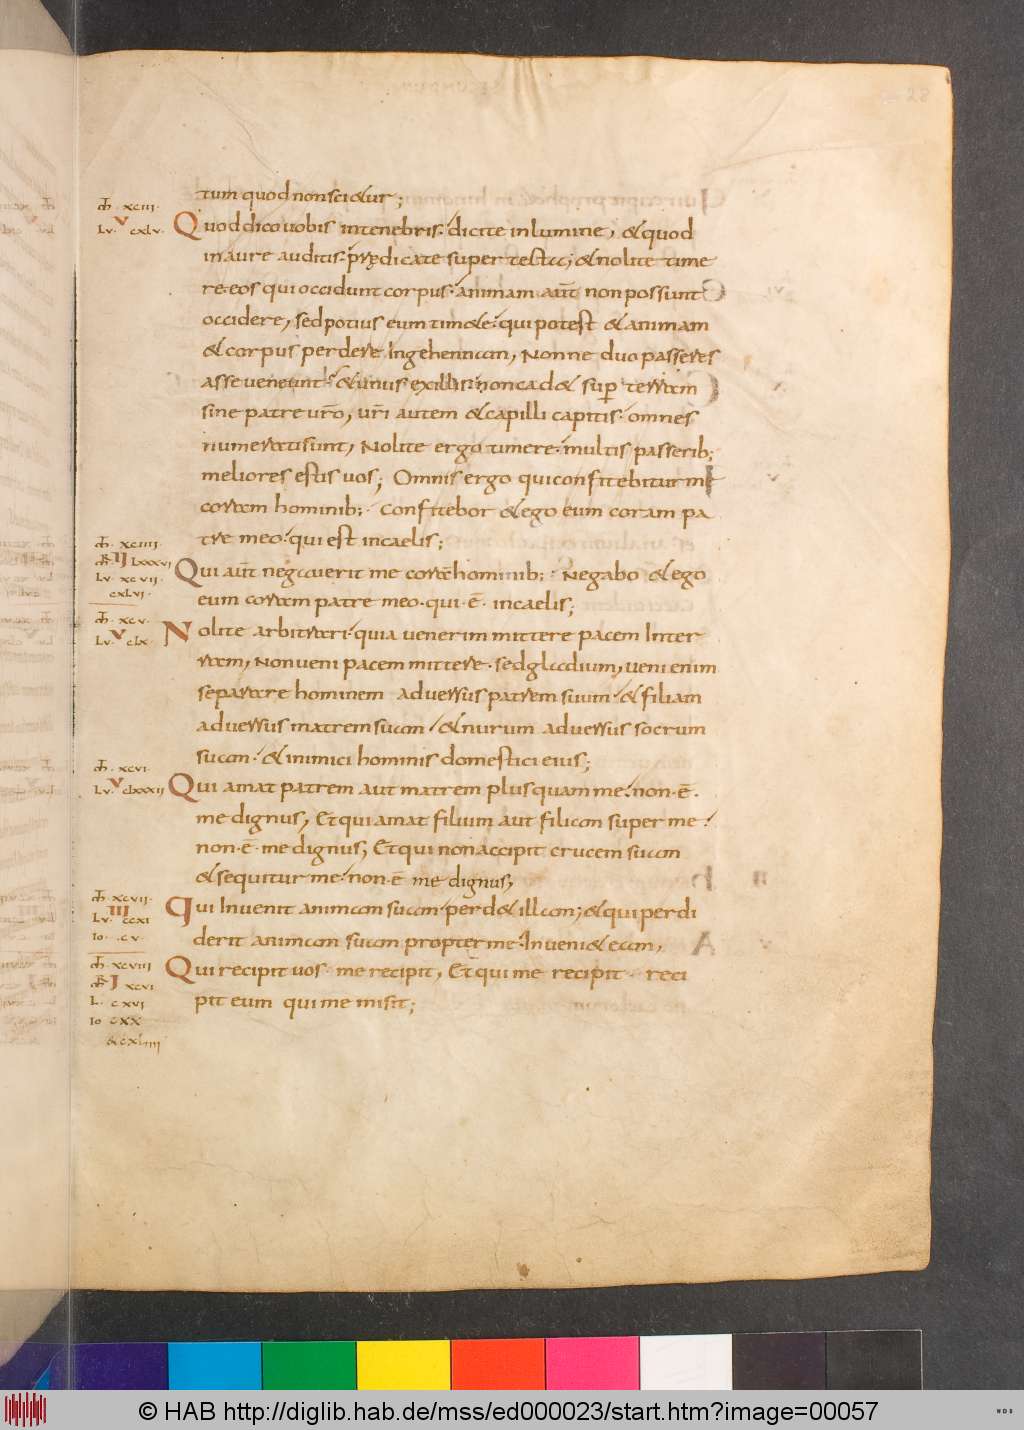 28
tum quod non scietur;
Mh xciii.
Lu. V cxlv.
Quod dico uobis in tenebris. dicite in lumine, et quod
in aure auditis. prędicate super tecta; et nolite time
re. eos qui occidunt corpus. animam aut̄ non possunt
occidere, sed potius eum timete. qui potest et animam
et corpus perdere. In gehennam, Nonne duo passeres
asse ueneunt. et unus ex illis non cadet sup̄ terram
sine patre ur̄o, ur̄i autem et capilli capitis. omnes
numerati sunt, Nolite ergo timere. multis passerib;
meliores estis uos; Omnis ergo qui confitebitur me
coram hominib; Confitebor et ego eum coram pa
tre meo. qui est in caelis;
Mh. xciiii.
MR II lxxxvi
Lu. xcvii.
cxlvi.
Qui aut̄ negauerit me corā hominib; Negabo et ego
eum coram patre meo. qui. ē. in caelis;
Mh. xcv.
Lu. V clx.
Nolite arbitrari. quia uenerim mittere pacem In ter
ram, Non ueni pacem mittere. sed gladium, ueni enim
separare hominem aduersus patrem suum. et filiam
aduersus matrem suam. et nurum aduersus socrum
suam. et inimici hominis domestici eius;
Mh. xcvi.
Lu. V clxxxii
Qui amat patrem aut matrem plusquam me. non. ē.
me dignus, Et qui amat filium aut filiam super me.
non. ē. me dignus, Et qui non accipit crucem suam
et sequitur me. non. ē me dignus,
Mh. xcvii.
Lu. III ccxi
Io. .cv.
Qui Inuenit animam suam. perdet illam; et qui perdi
derit animam suam propter me. Inueniet eam,
Mh. xcviii
MR I xcvi
L. cxvi
Io cxx
et cxliiii
Qui recipit uos. me recipit, Et qui me recipit. reci
pit eum qui me misit;
© HAB http://diglib.hab.de/mss/ed000023/start.htm?image=00057
WDB